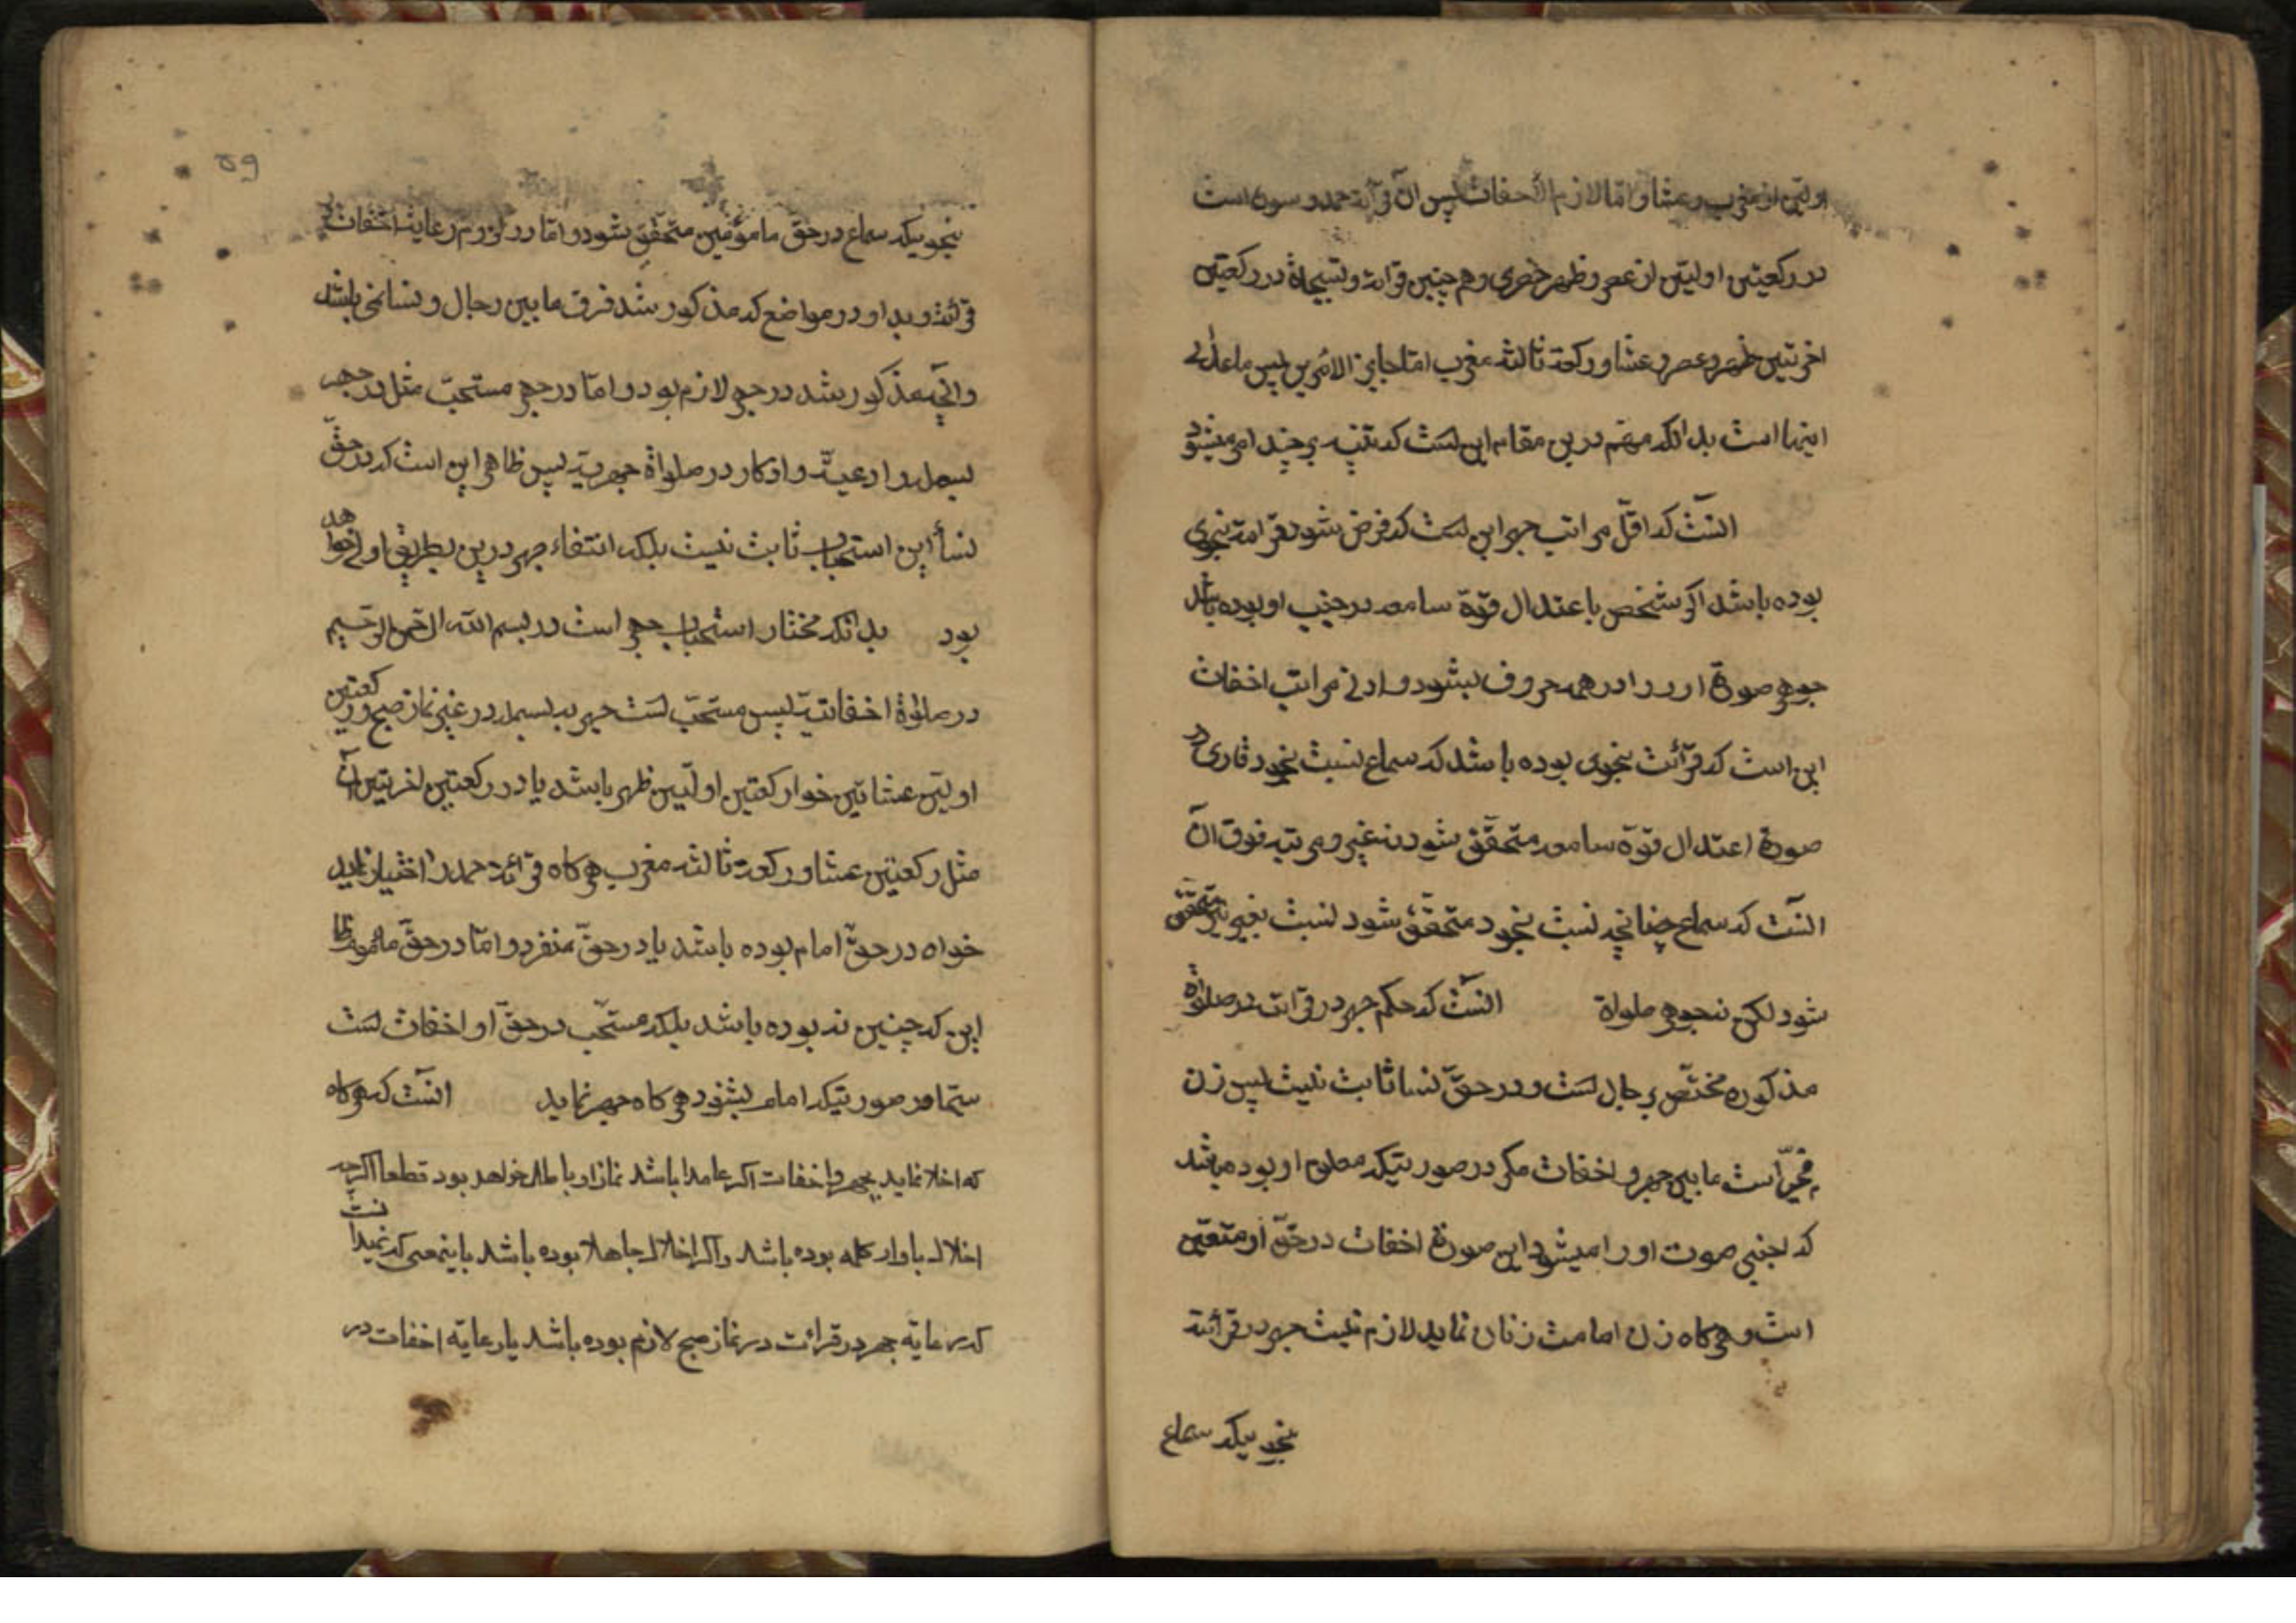 اولتین از مغرب و عشا و امّا لازم الأخفات پس آن قرآئة حمد و سوره است
در رکعتین اولیتین از عصر و ظهر حضری و هم چنین قرائة و تسبیحاة در رکعتین
اخرتیین ظهر و عصر و عشا و رکعة ثالثه مغرب امّا جایز الأمرین پس ماعدای
اینها است بدانکه مهّم درین مقام این است که تنبیه بر چند امر میشود
آنست که اقلّ مراتب جهر این است که فرض شود قرائة بنحوی
بوده باشد اگر شخص باعتدال قوّة سامعه در جنب او بوده باشد
جوهر صوة او را در همه حروف بشنود و ادنی مراتب اخفات
این است که قرآئت بنحوی بوده باشد که سماع نسبت بخود قاری در
صورة اعتدال قوّة سامعه متحقّق شود نه غیر و مرتبه فوق آن
آنست که سماع چنانچه نسبت بخود متحقّق شود نسبت بغیر نیز متحقق
شود لکن نه بجوهر صلواة آنست که حکم جهر در قرائت در صلواة
مذکوره مختّص برجال است و در حقّ نسا ثابت نیست پس زن
مخیّر است مابین جهر و اخفات مگر در صورتیکه معلوم او بوده باشد
که اجنبی صوت او را میشنود این صورة اخفات در حقّ او متعیّن
است و هر کاه زن امامت زنان نماید لازم نیست جهر در قرآئة
بنحویکه سماع
59
بنحویکه سماع در حقّ مامؤمین متحقّق شود و امّا در لزوم رعایت اخفات در
قرآئة و بداو در مواضع که مذکور شد فرق مابین رجال و نسا نمی باشد
و آنچه مذکور شد در جهر لازم بود و امّا در جهر مستحبّ مثل در جهر
بسمله و ادعیّه و اذکار در صلواة جهریّه پس ظاهر این است که در حقّ
نسأ این استحباب ثابت نیست بلکه انتفاء جهر درین بطریق اولی خواهد
بود بدانکه مختار استحباب جهر است در بسم الله الرّحمن الرّحیم
در صلوة اخفاتیّه پس مستحبّ است جهر به بسمله در غیر نماز صبح و رکعتین
اولیّن عشائین خواه رکعتین اولّیین ظهر باشد یا در رکعتین اخرتین آن
مثل رکعتین عشا و رکعة ثالثه مغرب هر کاه قرآئة حمد را اختیار نماید
خواه در حقّ امام بوده باشد یا در حقّ منفرد و امّا در حقّ مأموم ظا
این که چنین نه بوده باشد بلکه مستحّب در حقّ او اخفات است
سیّما در صورتیکه امام بشنود هر کاه جهر نماید آنست که هر کاه
که اخلا نماید بجهر و اخفات اکر عامدا باشد نماز او باطله خواهد بود قطعا اکرچه
اخلال باوار کلمه بوده باشد و اکر اخلال جاهلا بوده باشد باینمعنی که نمیدانست
که رعایّه جهر در قرائت در نماز صبح لازم بوده باشد یا رعایّه اخفات در